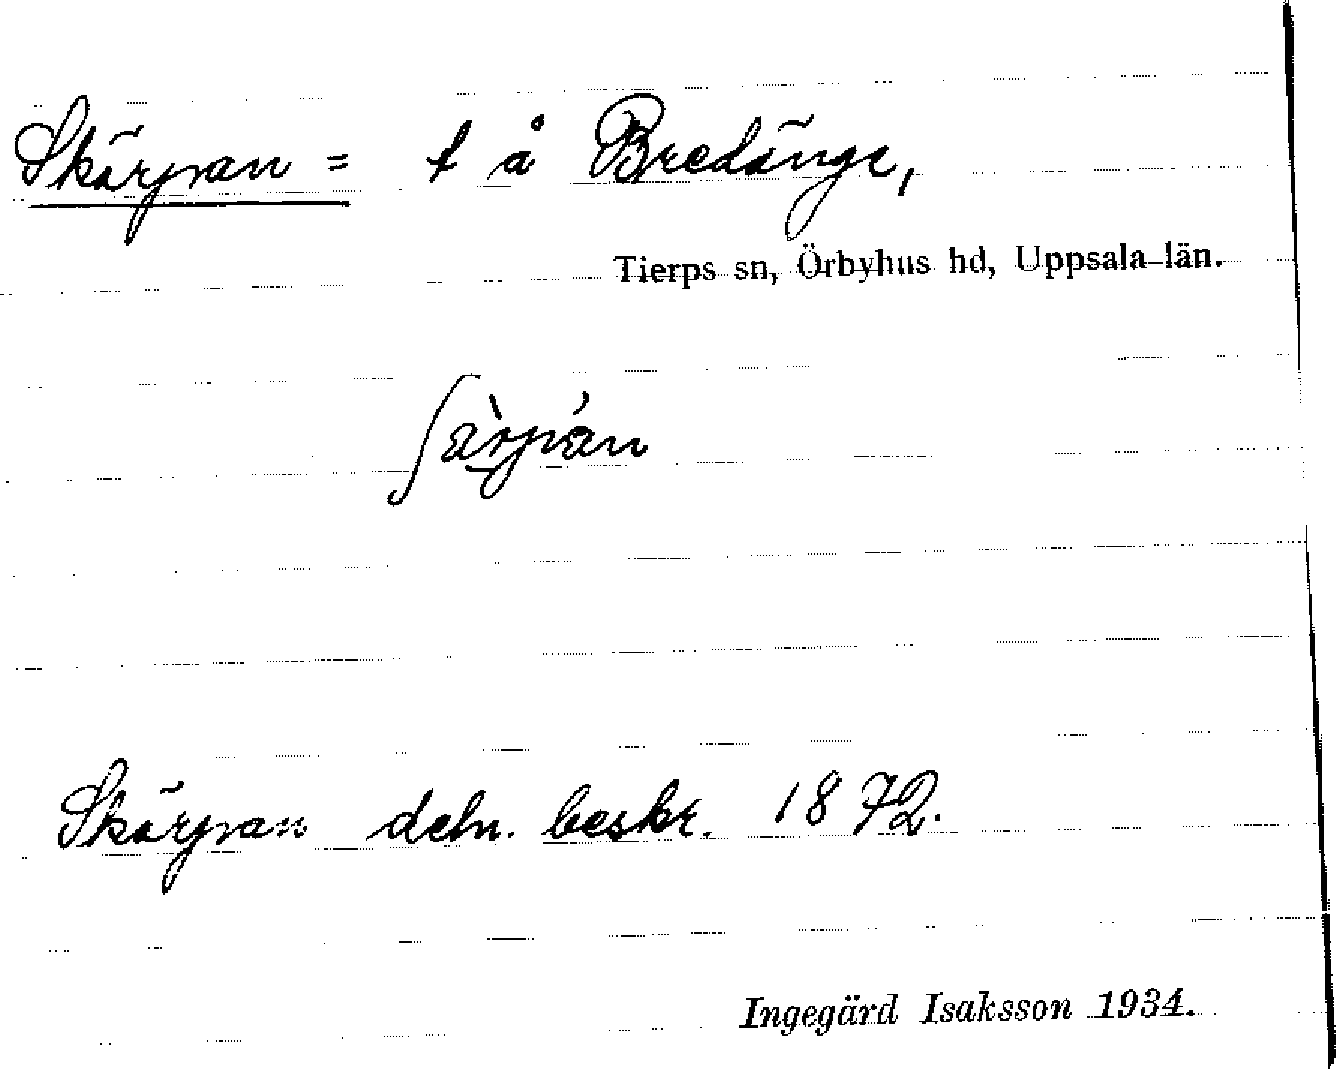 Skärpan = t å Bredänge,
Tierps sn, Örbyhus hd, Uppsala län.
Skärpan deln. beskr. 1872.
Ingegärd Isaksson 1934.